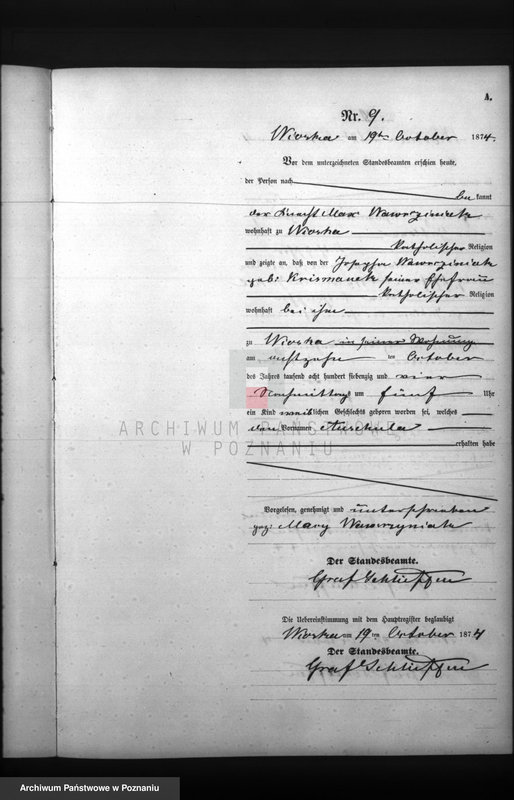 A.
Nr. 9.
Wioska am 19ten October 1874.
Vor dem unterzeichneten Standesbeamten erschien heute,
der Person nach
be kannt
der Knecht Max Wawrziniak
wohnhaft zu Wioska
katholischer Religion
und zeigte an, daß von der Josepha Wawrziniak
geb: Krismanek seiner Ehefrau
katholischer Religion
wohnhaft bei ihm
zu Wioska in seiner Wohnung
am achtzehn ten October
des Jahres tausend acht hundert siebenzig und vier
Nachmittags um fünf Uhr
ein Kind weiblichen Geschlechts geboren worden sei, welches
den Vornamen
erhalten habe
Vorgelesen, genehmigt und unterschrieben
gez: Wawrzyniak
Der Standesbeamte.
Graf Schlieffen
Die Uebereinstimmung mit dem Hauptregister beglaubigt
Wioska am 19 ten October 1874
Der Standesbeamte.
Graf Schlieffen
ARCHIWUM PAŃSTWOWE
W POZNANIU
Archiwum Państwowe w Poznaniu